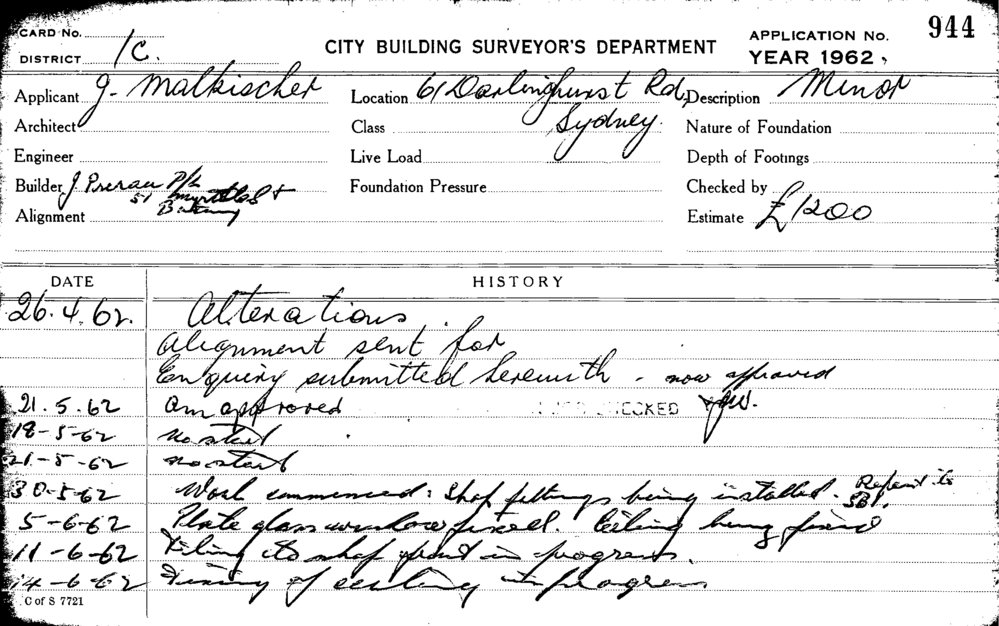 CARD No.
DISTRICT 1C.
CITY BUILDING SURVEYOR'S DEPARTMENT
APPLICATION No. 944
YEAR 1962,
Applicant J. Malkischer Location 61 Darlinghurst Rd, Description Minor
Architect Class Sydney. Nature of Foundation
Engineer Live Load Depth of Footings
Builder J Prerau P/L Foundation Pressure Checked by
51 Myrtle St
Alignment Botany Estimate £1200
DATE HISTORY
26.4.62. Alterations.
Alignment sent for
Enquiry submitted herewith - now approved
21.5.62 am approved CHECKED
18-5-62 no start
21-5-62 no start
30-5-62 Work commenced: Shop fittings being installed.
5-6-62 Plate glass window fixed. Ceiling being fixed
11-6-62 Tiling to shop front in progress.
14-6-62 Fixing of ceiling in progress
C of S 7721